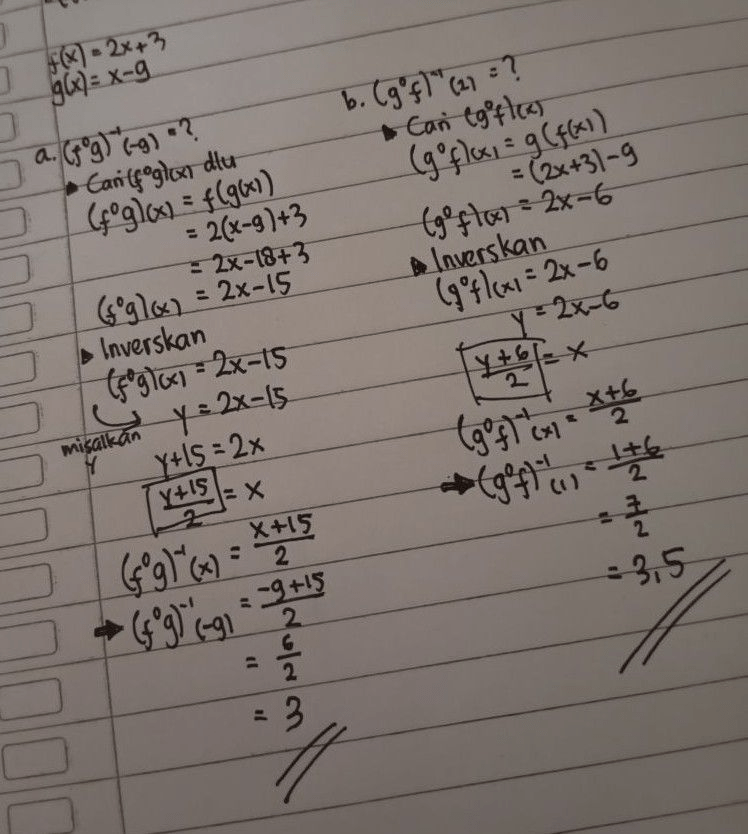 f(x) = 2x+3
g(x) = x-9
a. (f°g)⁻¹(-9) = ?
▶ Cari (f°g)(x) dlu
(f°g)(x) = f(g(x))
= 2(x-9)+3
= 2x-18+3
(f°g)(x) = 2x-15
▶ Inverskan
(f°g)(x) = 2x-15
misalkan y
y = 2x-15
y+15 = 2x
y+15/2 = x
(f°g)⁻¹(x) = x+15/2
➡ (f°g)⁻¹(-9) = -9+15/2
= 6/2
= 3
b. (g°f)⁻¹(2) = ?
▶ Cari (g°f)(x)
(g°f)(x) = g(f(x))
= (2x+3)-9
(g°f)(x) = 2x-6
▶ Inverskan
(g°f)(x) = 2x-6
y = 2x-6
y+6/2 = x
(g°f)⁻¹(x) = x+6/2
➡ (g°f)⁻¹(1) = 1+6/2
= 7/2
= 3,5